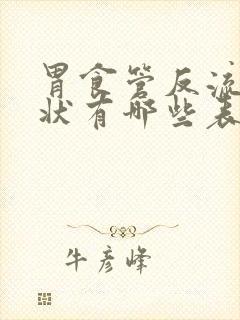 胃食管反流
状有哪些表
牛彦峰